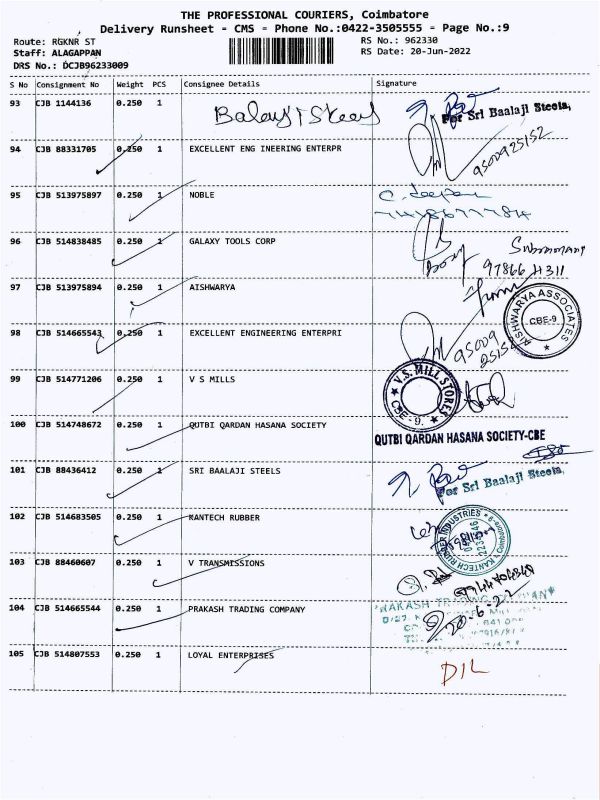 THE PROFESSIONAL COURIERS, Coimbatore
Delivery Runsheet - CMS - Phone No.:0422-3505555 - Page No.:9
Route: RGKNR ST RS No.: 962330
Staff: ALAGAPPAN RS Date: 20-Jun-2022
DRS No.: DCJB96233009
S No Consignment No Weight PCS Consignee Details Signature
93 CJB 1144136 0.250 1 Balaji Steels For Sri Baalaji Steels,
94 CJB 88331705 0.250 1 EXCELLENT ENG INEERING ENTERPR 9500925152
95 CJB 513975897 0.250 1 NOBLE
96 CJB 514838485 0.250 1 GALAXY TOOLS CORP
97 CJB 513975894 0.250 1 AISHWARYA AISHWARYA ASSOCIATES CBE-9
98 CJB 514665543 0.250 1 EXCELLENT ENGINEERING ENTERPRI 95009 25152
99 CJB 514771206 0.250 1 V S MILLS V.S. MILL STORES CBE - 9.
100 CJB 514748672 0.250 1 QUTBI QARDAN HASANA SOCIETY QUTBI QARDAN HASANA SOCIETY-CBE
101 CJB 88436412 0.250 1 SRI BAALAJI STEELS For Sri Baalaji Steels,
102 CJB 514683505 0.250 1 KANTECH RUBBER KANTECH RUBBER INDUSTRIES
103 CJB 88460607 0.250 1 V TRANSMISSIONS
104 CJB 514665544 0.250 1 PRAKASH TRADING COMPANY 20-6-22
105 CJB 514807553 0.250 1 LOYAL ENTERPRISES DIL